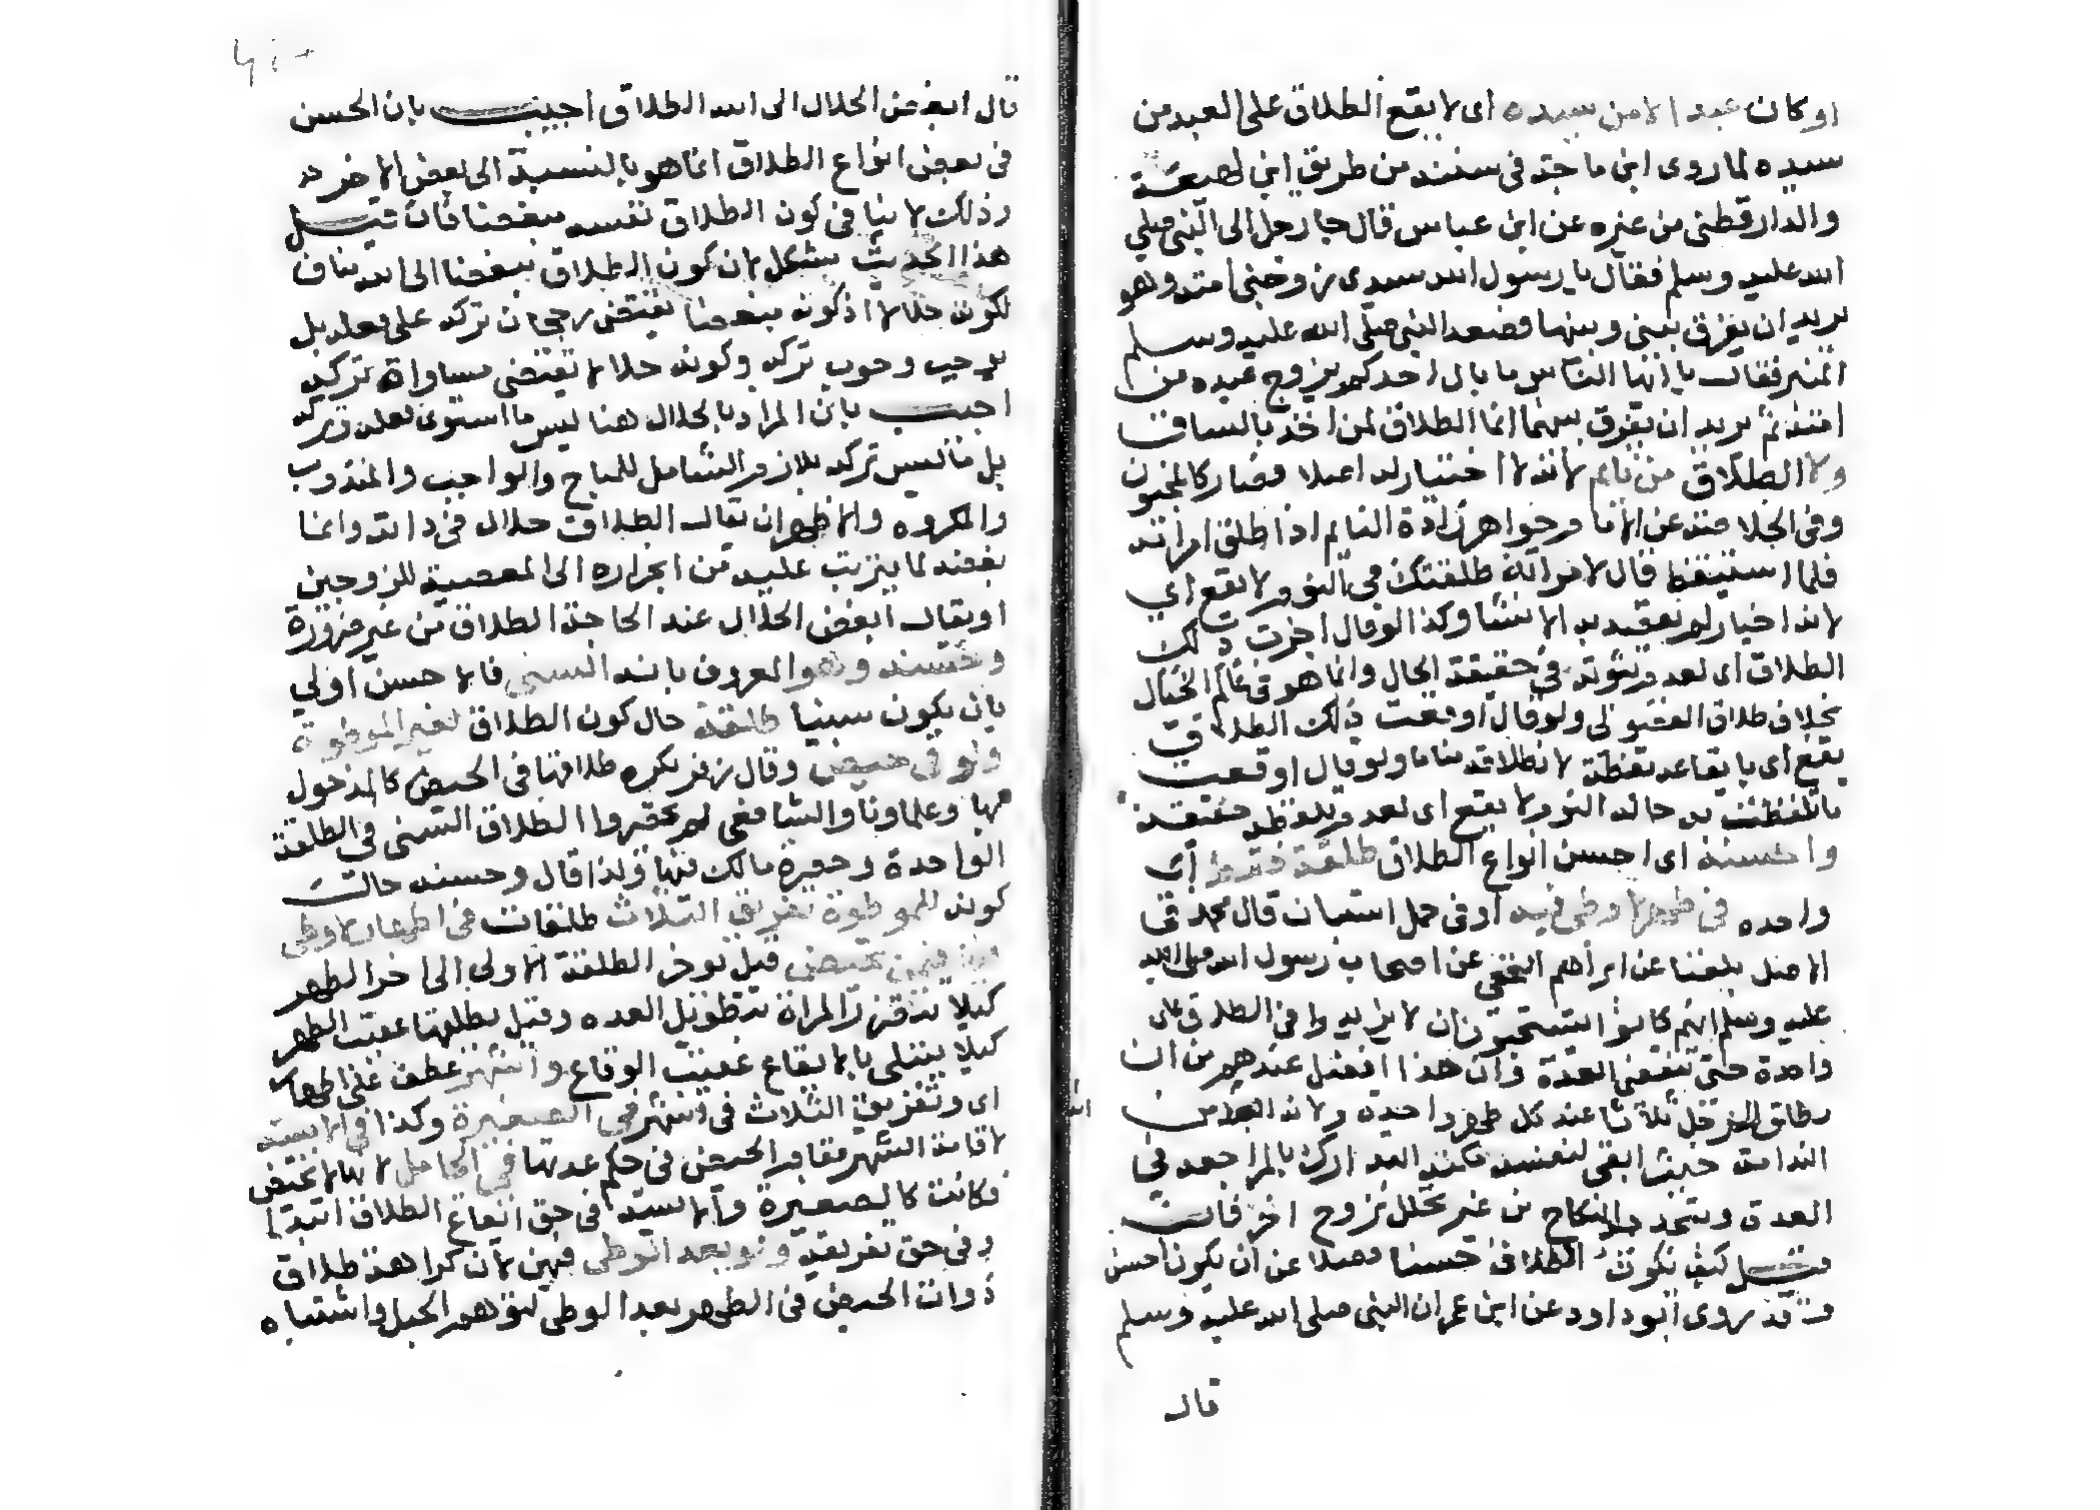 او كان عبدا لا من سيده اى لا يقع الطلاق على العبد من
سيده لما روى ابن ماجة فى سننه من طريق ابن لهيعة
والدارقطنى من غيره عن ابن عباس قال جا رجل الى النبى صلى
الله عليه وسلم فقال يا رسول الله سيدى زوجنى امته وهو
يريد ان يفرق بينى وبينها فصعد النبى صلى الله عليه وسلم
المنبر فقال يا ايها الناس ما بال احدكم يزوج عبده من
امته ثم يريد ان يفرق بينهما انما الطلاق لمن اخذ بالساق
ولا الطلاق من نايم لانه لا اختيار له اصلا فصار كالمجنون
وفى الخلاصة عن الامام خواهرزاده النايم اذا طلق امراته
فلما استيقظ قال لامراته طلقتك فى النوم لا يقع اى
لانه اخبار لم يقصد به الانشا وكذا لو قال اجزت ذلك
الطلاق اى بعد ثبوته فى حقيقة الحال وانما هو فى عالم الخيال
بخلاف طلاق الفضولى ولو قال اوقعت ذلك الطلاق
يقع اى بايقاعه يقظة لا بطلاقه مناما ولو قال اوقعت
ما تلفظت به حالة النوم لا يقع اى لعدم تلفظه حقيقة
واحسنه اى احسن انواع الطلاق طلقة فقط اى
واحده فى طهر لا وطى فيه او فى حمل استبان قال محمد فى
الاصل بلغنا عن ابراهيم النخعى عن اصحاب رسول الله صلى الله
عليه وسلم انهم كانوا يستحبون ان لا يزيدوا فى الطلاق على
واحدة حتى تنقضى العدة وان هذا افضل عندهم من ان
يطلق الرجل ثلاثا عند كل طهر واحدة ولانه ابعد من
الندامة حيث ابقى لنفسه مكنة التدارك بالمراجعة فى
العدة وبتجديد النكاح من غير تخلل زوج اخر فان
قيل كيف يكون الطلاق حسنا فضلا عن ان يكون احسن
وقد روى ابو داود عن ابن عمر ان النبى صلى الله عليه وسلم
قال
قال ابغض الحلال الى الله الطلاق اجيب بان الحسن
فى بعض انواع الطلاق انما هو بالنسبة الى بعض الاخر
وذلك لا ينافى كون الطلاق نفسه مبغضا فان قيل
هذا الحديث مشكل لان كون الطلاق مبغضا الى الله مناف
لكونه حلالا اذ كونه مبغضا يقتضى رجحان تركه على فعله بل
يوجب وجوب تركه وكونه حلالا يقتضى مساواة تركه
اجيب بان المراد بالحلال هنا ليس ما استوى فعله وتركه
بل ما ليس تركه بلازم الشامل للمباح والواجب والمندوب
والمكروه والاظهر ان يقال الطلاق حلال فى ذاته وانما
بغضه لما يترتب عليه من انجراره الى المعصية للزوجين
او يقال ابغض الحلال عند الحاجة الطلاق من غير ضرورة
وحسنه وهو المعروف بانه السنى فالاحسن اولى
بان يكون سنيا طلقة حال كون الطلاق لغير الموطوة
ولو فى حيض وقال زفر يكره طلاقها فى الحيض كالمدخول
بها وعلماونا والشافعى لم يحصروا الطلاق السنى فى الطلقة
الواحدة وحصره مالك فيها ولذا قال وحسنه حالة
كونه للموطوة تفريق الثلاث طلقات فى اطهار لا وطى
فيها فيمن تحيض قيل توخر الطلقة الاولى الى اخر الطهر
كيلا تتضرر المراة بتطويل العده وقيل يطلقها عقب الطهر
كيلا يبتلى بالايقاع عقيب الوقاع واشهر عطف على اطهار
اى وتفريق الثلاث فى اشهر فى الصغيرة وكذا فى الايسة
لاقامة الشهر مقام الحيض فى حكم عدتها فى الحامل لانها لا تحيض
فكانت كالصغيرة والايسة فى حق ايقاع الطلاق ابتدا
وفى حق تفريقه ولو بعد الوطى فيهن لان كراهة طلاق
ذوات الحيض فى الطهر بعد الوطى لتوهم الحبل واشتباه